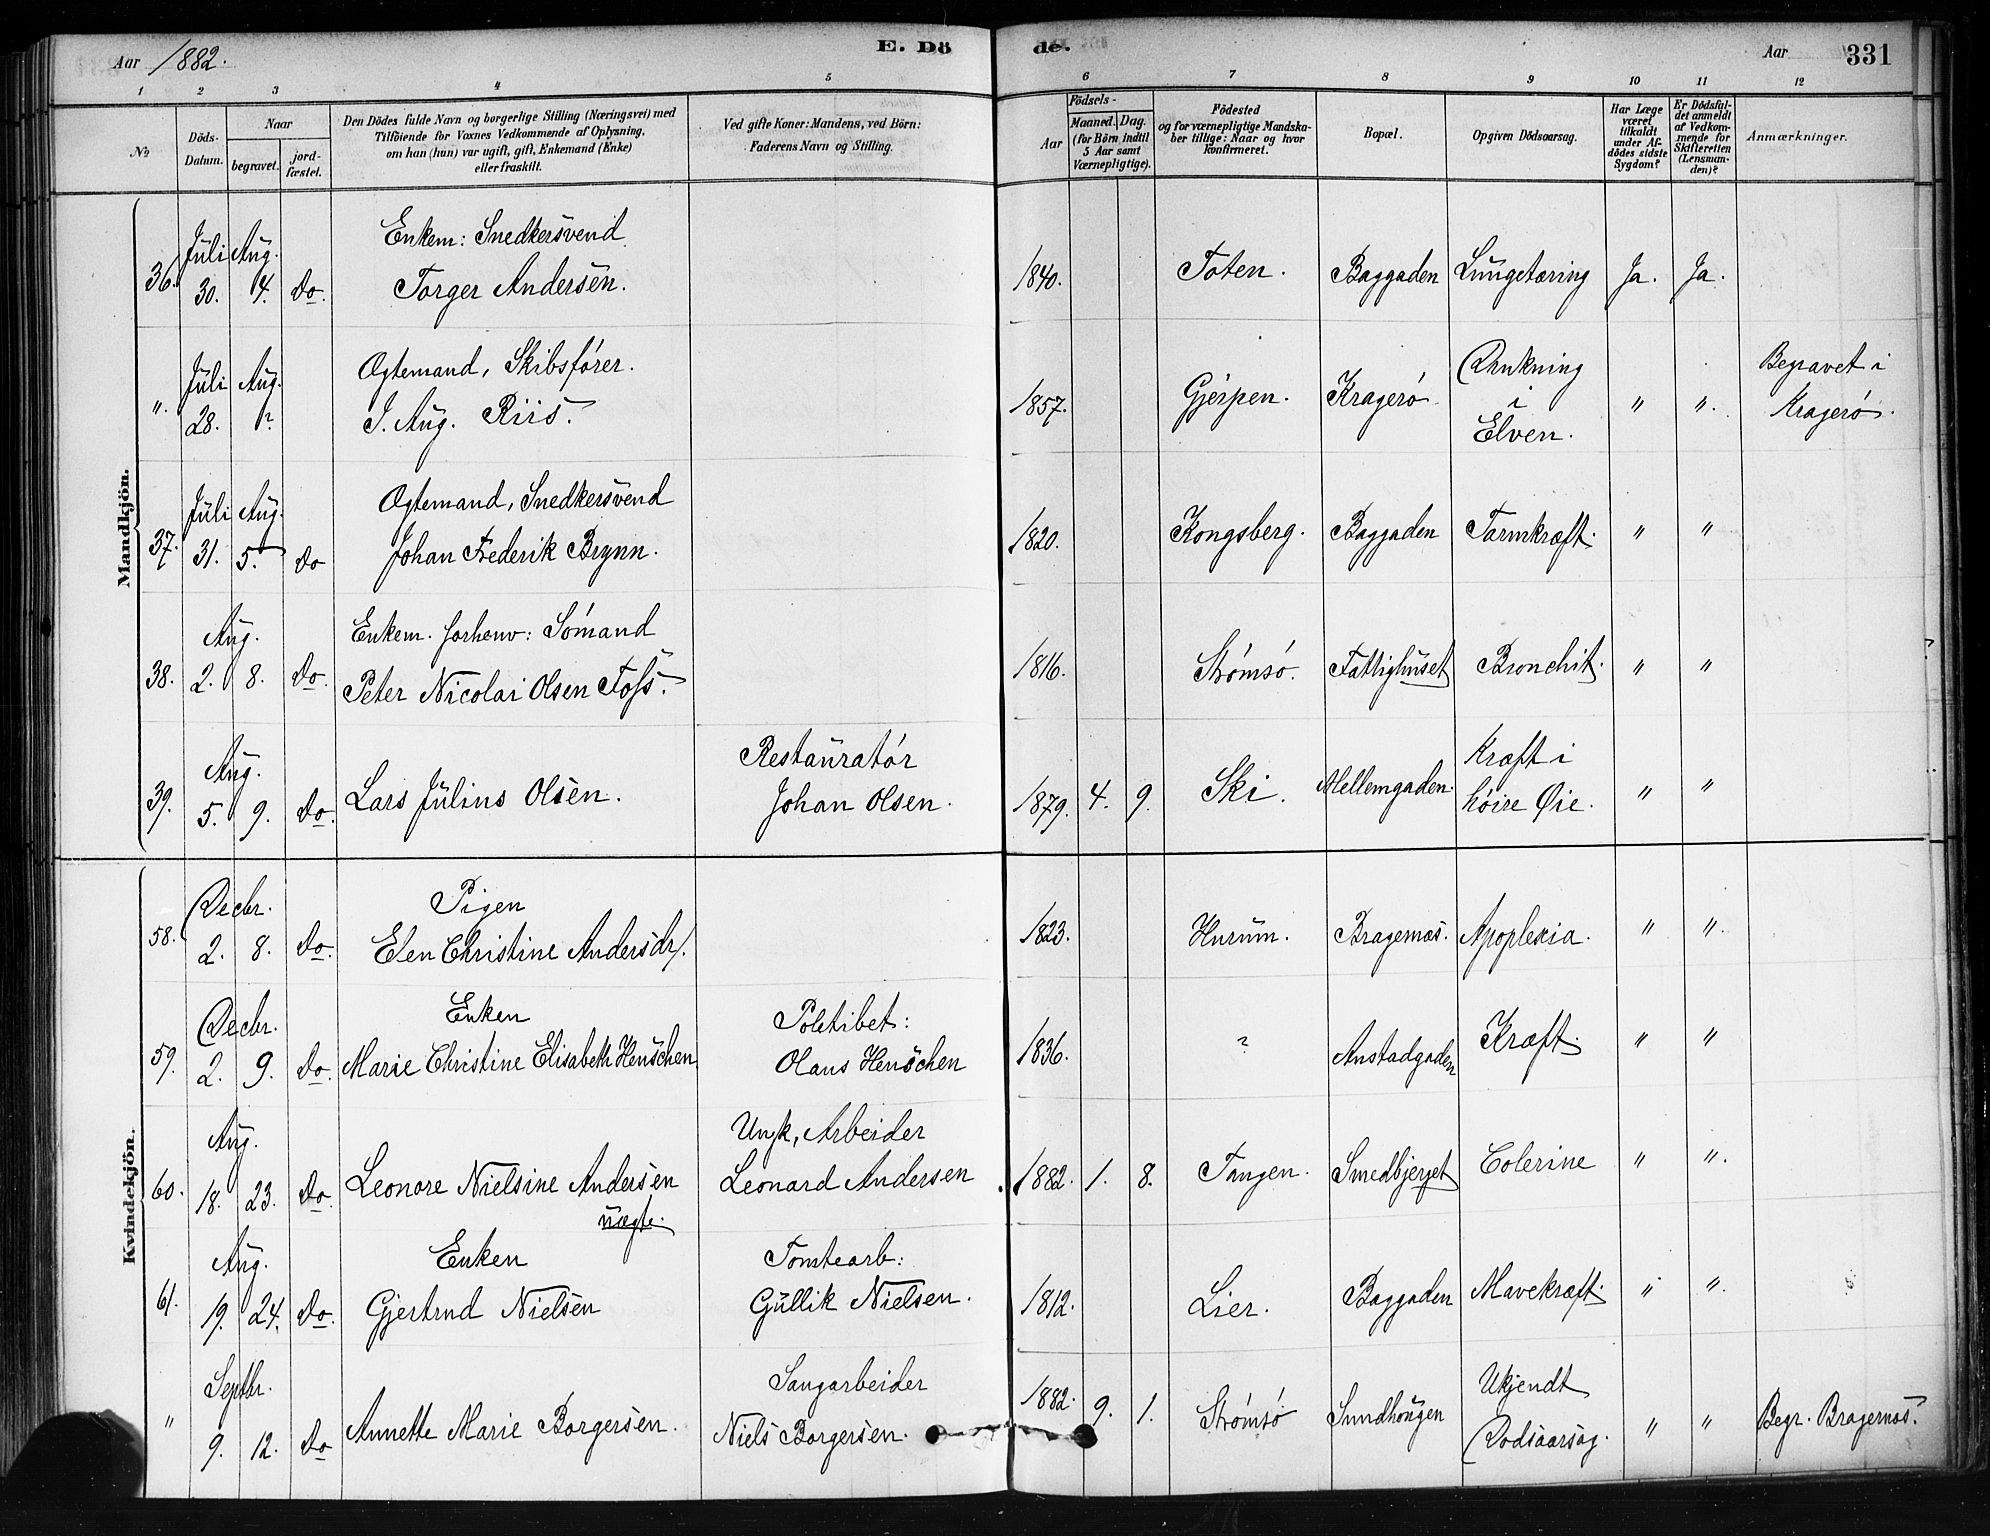 Aar 1882. E. Dö de. Aar 331
1 2 3 4 5 6 7 8 9 10 11 12
No
Döds-Datum.
Naar
begravet.
jordfæstet.
Den Dödes fulde Navn og borgerlige Stilling (Næringsvei) med
Tilföiende for Voxnes Vedkommende af Oplysning,
om han (hun) var ugift, gift, Enkemand (Enke)
eller fraskilt.
Ved gifte Koner: Mandens, ved Börn:
Faderens Navn og Stilling.
Födsels-
Aar
Maaned. Dag.
(for Börn indtil
5 Aar samt
Værnepligtige).
Födested
og for værnepligtige Mandska-
ber tillige: Naar og hvor
konfirmeret.
Bopæl.
Opgiven Dödsaarsag.
Har Læge
været
tilkaldt
under Af-
dödes sidste
Sygdom?
Er Dödsfal-
det anmeldt
af Vedkom-
mende for
Skifteretten
(Lensman-
den)?
Anmærkninger.
Mandkjön.
Juli Aug. Enkem: Snedkersvend
36. 30. 4. Do. Torger Andersen. 1840. Toten. Baggaden Lungetæring Ja. Ja.
Juli Aug. Ogtemand, Skibsfører. Drukning Begravet i
" 28. ? J. Aug. Riis. 1857. Gjerpen. Kragerø i " " Kragerø.
Elven.
Juli Aug. Ogtemand, Snedkersvend
37. 31. 5. Do Johan Frederik Brynn. 1820. Kongsberg. Baggaden Tarmkræft. " "
Aug. Enkem. forhenv: Sømand
38. 2. 8. Do. Peter Nicolai Olsen Foss. 1816. Strømsø. Fattighuset Bronchit. " "
Aug. Restauratør Kræft i
39. 5. 9. Do. Lars Julius Olsen. Johan Olsen. 1879. 4. 9. Ski. Mellemgaden. høire Øie. " "
Kvindekjön.
Decbr. Pigen
58. 2. 8. Do. Elen Christine Andersdr/. 1823. Hurum. Bragernæs. Apoplexia. " "
Decbr. Enken Politibet:
59. 2. 9. Do. Marie Christine Elisabeth Henschen Olaus Henschen 1836. ? Anstadgaden Kræft. " "
Aug. Ungk, Arbeider
60. 18. 23. Do. Leonore Nielsine Andersen Leonard Andersen 1882. 1. 8. Tangen. Smedbjerget Colerine " "
uægte.
Aug. Enken Tomtearb:
61. 19. 24. Do. Gjertrud Nielsen Gullik Nielsen. 1812. Lier. Baggaden Mavekræft. " "
Septbr. Saugarbeider Ukjendt
" 9. 12. Do Annette Marie Borgersen. Niels Borgersen. 1882. 9. 1. Strømsø Sundhougen Dødsaarsag. " " Begr. Bragernæs.